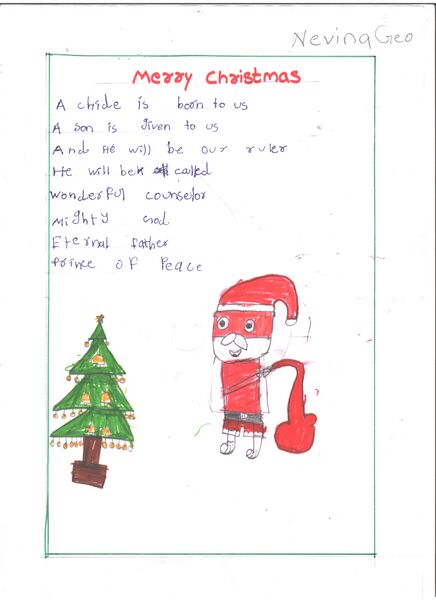 Nevina Geo
Merry Christmas
A chide is born to us
A son is given to us
And He will be our ruler
He will be called
Wonderful counselor
Mighty God
Eternal father
Prince of Peace